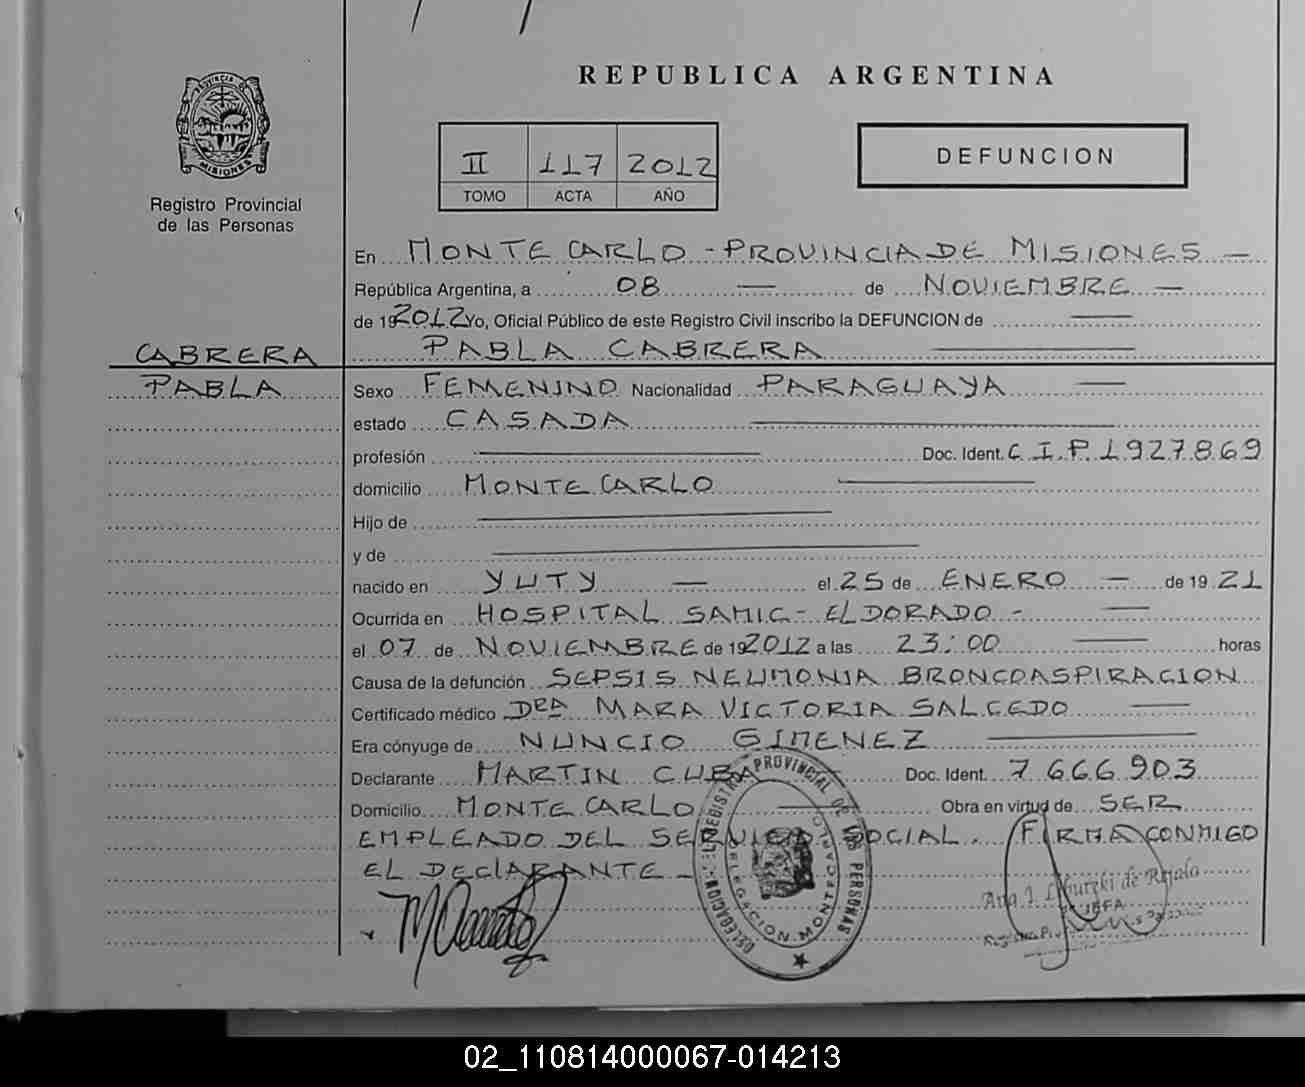 REPUBLICA ARGENTINA
PROVINCIA D
MISIONES
Registro Provincial
de las Personas
II 117 2012
TOMO ACTA AÑO
DEFUNCION
En MONTE CARLO - PROVINCIA DE MISIONES —
República Argentina, a 08 — de NOVIEMBRE —
de 192012 Yo, Oficial Público de este Registro Civil inscribo la DEFUNCION de —
CABRERA
PABLA
PABLA CABRERA —
Sexo FEMENINO Nacionalidad PARAGUAYA —
estado CASADA —
profesión — Doc. Ident. C.I.P. 1927869
domicilio MONTE CARLO —
Hijo de —
y de —
nacido en YUTY — el 25 de ENERO — de 19 21
Ocurrida en HOSPITAL SAMIC - ELDORADO - —
el 07 de NOVIEMBRE de 192012 a las 23:00 — horas
Causa de la defunción SEPSIS NEUMONIA BRONCOASPIRACION
Certificado médico DRA MARA VICTORIA SALCEDO —
Era cónyuge de NUNCIO GIMENEZ —
Declarante MARTIN CUBA Doc. Ident. 7.666.903
Domicilio MONTE CARLO — Obra en virtud de SER
EMPLEADO DEL SERVICIO SOCIAL. FIRMA CONMIGO
EL DEClARANTE -
REGISTRO PROVINCIAL DE LAS PERSONAS
DELEGACION MONTECARLO
DELEGACION
de
JEFA
02_110814000067-014213